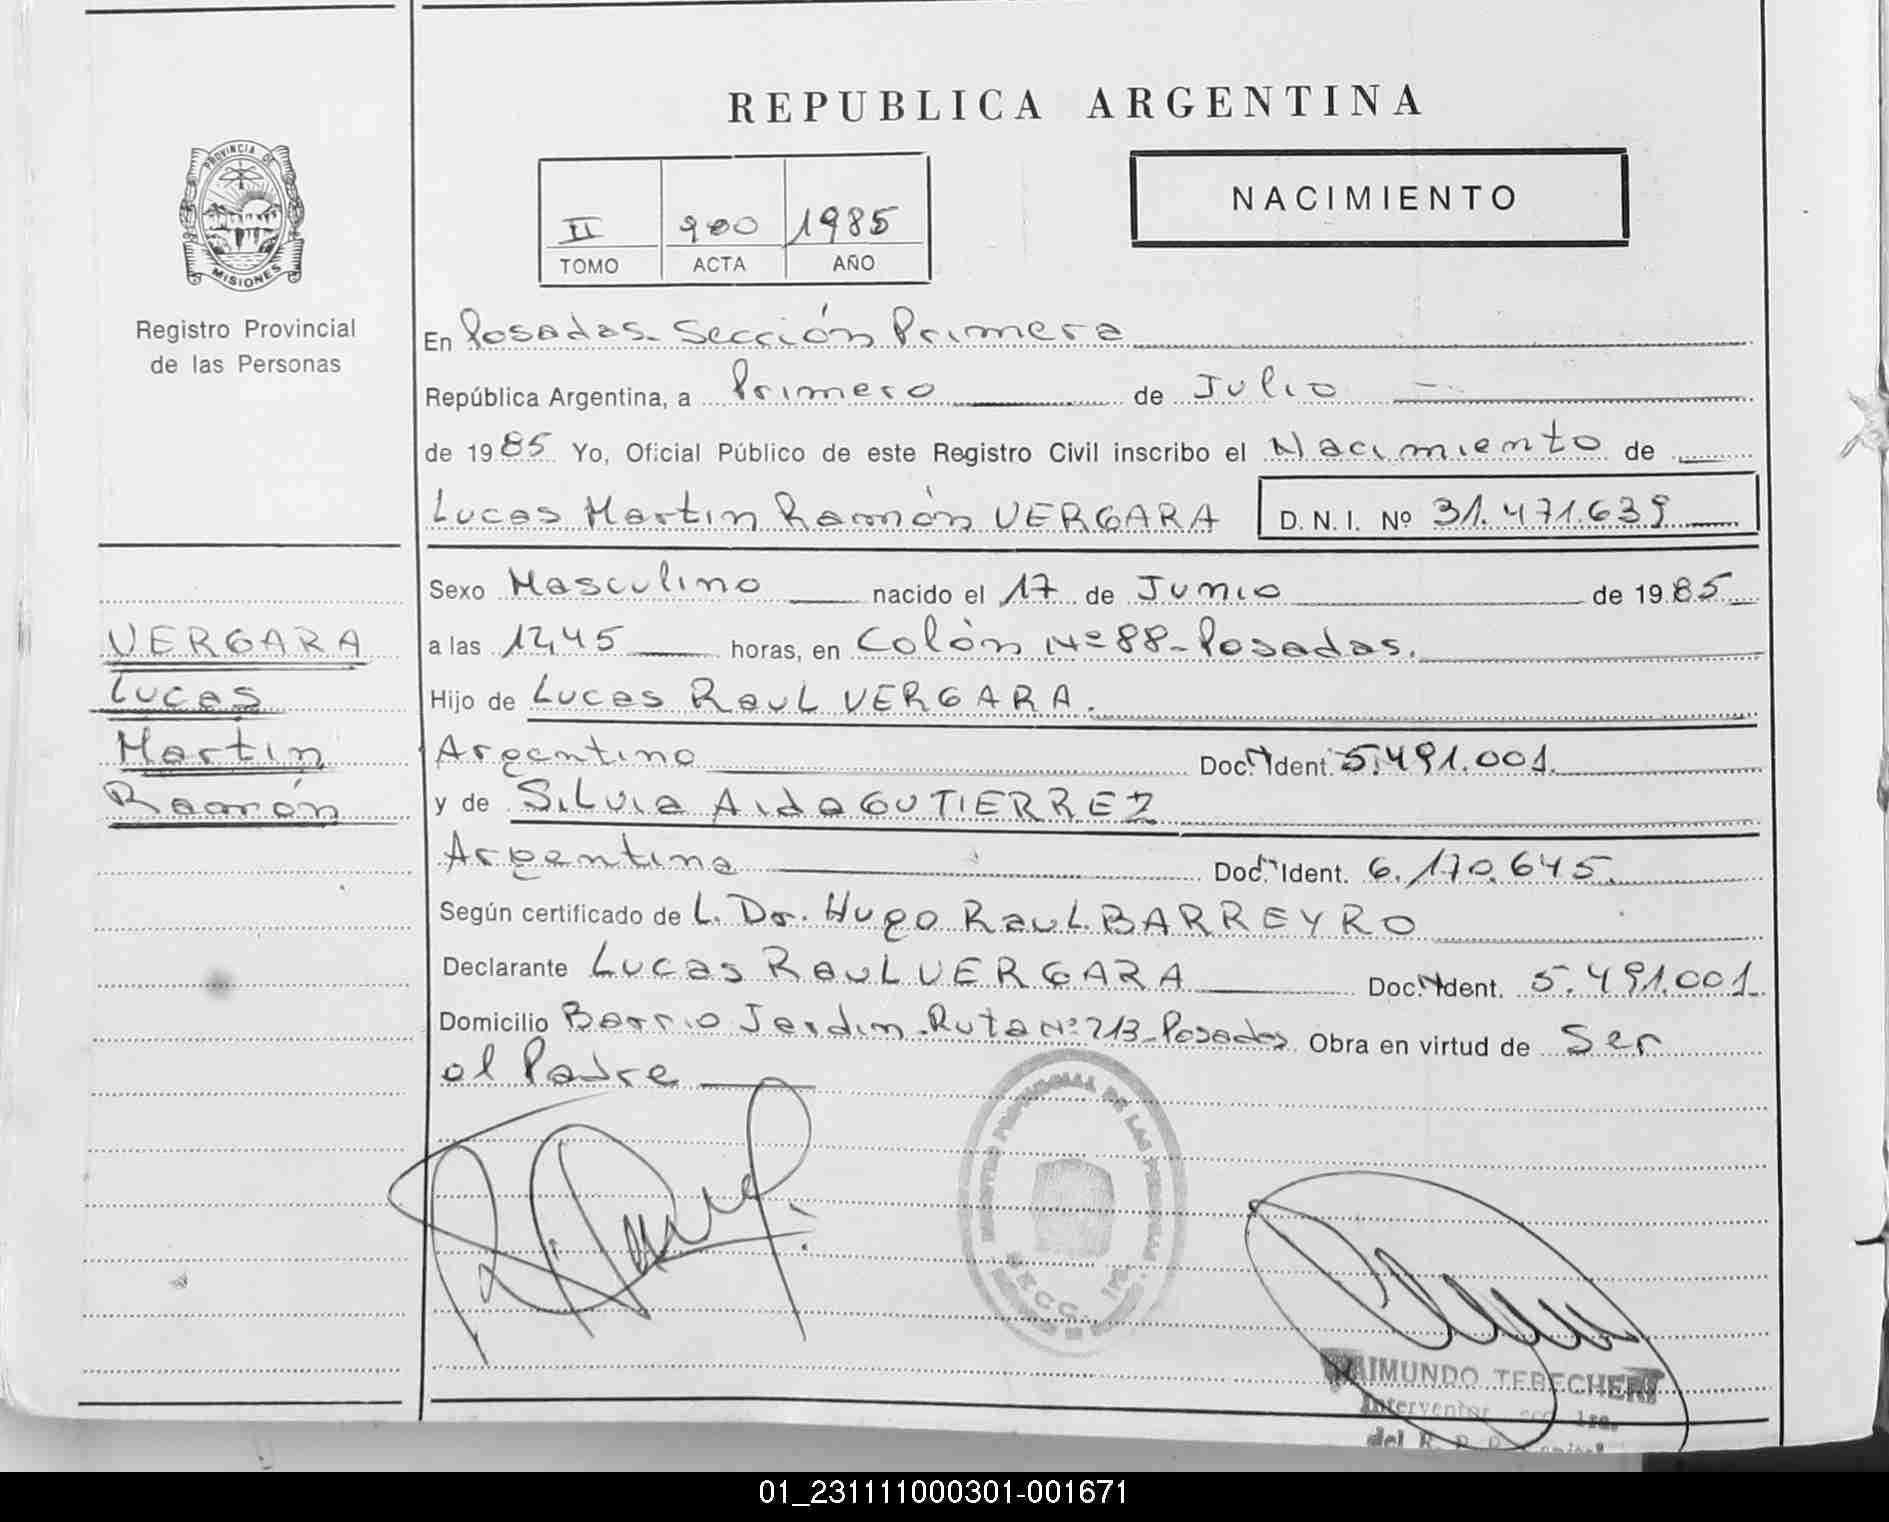 REPUBLICA ARGENTINA
PROVINCIA DE
MISIONES
Registro Provincial
de las Personas
NACIMIENTO
II 900 1985
TOMO ACTA AÑO
En Posadas - Sección Primera
República Argentina, a Primero de Julio
de 1985 Yo, Oficial Público de este Registro Civil inscribo el Nacimiento de
Lucas Martin Ramón VERGARA D.N.I. Nº 31.471.639
VERGARA
Lucas
Martin
Ramón
Sexo Masculino nacido el 17 de Junio de 1985
a las 12,45 horas, en Colón Nº 88 - Posadas.
Hijo de Lucas Raul VERGARA.
Argentino Doc. Ident. 5.491.001.
y de Silvia Aida GUTIERREZ
Argentina Doc. Ident. 6.170.645.
Según certificado de L. Dr. Hugo Raul BARREYRO
Declarante Lucas Raul VERGARA Doc. Ident. 5.491.001
Domicilio Barrio Jardin - Ruta Nº 213 - Posadas Obra en virtud de Ser
el Padre
REGISTRO PROVINCIAL DE LAS PERSONAS
SECC. 1ª
RAIMUNDO TEBECHERI
Interventor Secc 1ra.
del R. P. P. Capital
01_231111000301-001671